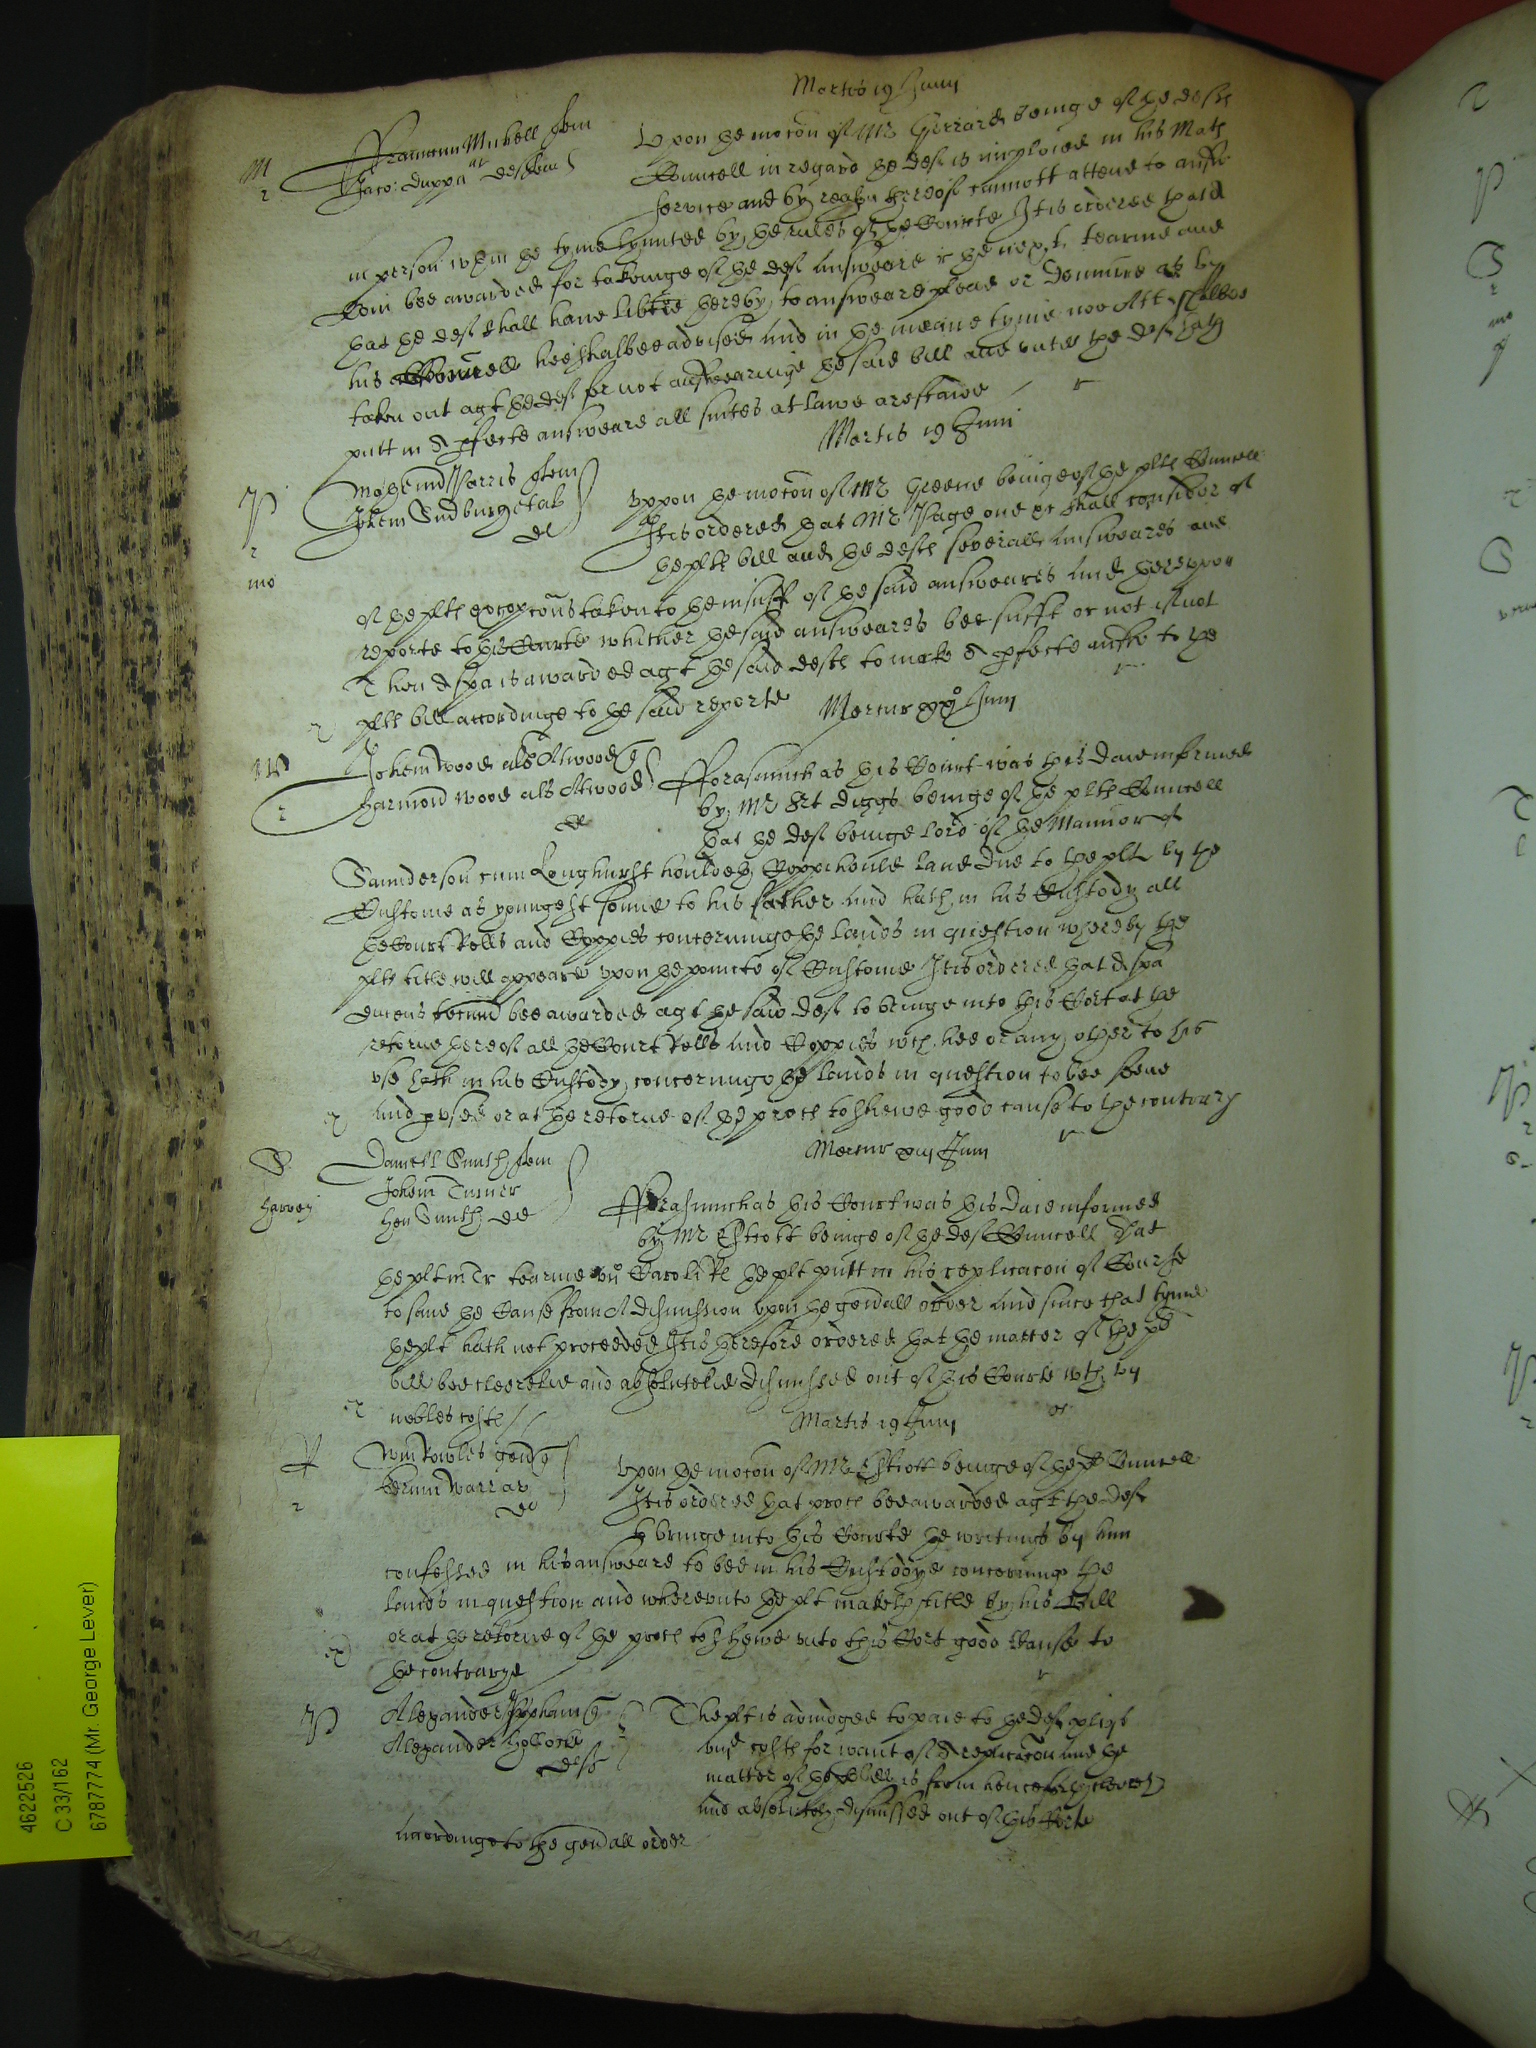 Martis 19 Junii
M
Michell
Jaco: Duppa at defend
Upon the mocon of Mr Gerrard being of the defts
Councell in regard the deft is imploied in his Maty
service and by reason thereof cannott attend to answ
in person wthin the tyme lymited by the rules of the Courte It is ordered that a
Com bee awarded for takeinge of the deft answeare in the next tearme and
that the deft shall have libtie hereby to answeare plead or demurre as by
his Councell hee shalbee advised And in the meane tyme noe Att shalbee
taken out agt the deft for not answearinge the said bill and untill the deft hath
putt in a pfecte answeare all suites at lawe are staide
Martis 19 Junii
P
mo
Harris
John Sudbury et al
def
Uppon the mocon of Mr Greene beinge of the plts Councell
It is ordered that Mr Page one &c shall consider of
the plts bill and the defts severall answeares and
of the plts excepcons taken to the insuff of the said answeares And thereupon
reporte to this Courte whither the said answeares bee sufft or not if not
Then a spa is awarded agt the said defts to make a pfecte answe to the
plts bill accordinge to the said reporte
Mercur xx Junii
W
John Wood als Atwood
Harmond Wood als Atwood
def
Fforasmuch as this Court was this daie informed
by Mr Diggs beinge of the plts Councell
that the deft beinge lord of the Mannor of
Saunderson cum Longhurst houldeth Coppihould land due to the plt by the
Custome as youngest sonne to his father And hath in his Custody all
the Court Rolls and Coppies concerninge the lands in question whereby the
plts title will appeare upon the pointe of Custome It is ordered that a spa
ducens tecum bee awarded agt the said deft to bringe into this Cort at the
retorne thereof all the Court Rolls and Coppies wch hee or any other to his
use hath in his Custody concerninge the lands in question to bee seene
And pused or at the retorne of the proces to shewe good cause to the contrary
Mercur Junii
S
Harvey
Daniell Smith
John Turner
Hen Smith def
Fforasmuch as this Court was this daie informed
by Mr Estcott beinge of the defts Councell that
the plt in Tr tearme Caroli Rs the plt putt in his replicacon of Course
to save the Cause from A dismission upon the generall order And since that tyme
the plt hath not proceeded It is therefore ordered that the matter of the pts
bill bee cleerelie and absolutelie dismissed out of this Courte wth
nobles costs
Martis 19 Junii
R
Wm Rowles gen
Warrar
def
Upon the mocon of Mr Estcott beinge of the plts Councell
It is ordered that proces bee awarded agt the deft
to bringe into this Courte the writings by him
confessed in his answeare to bee in his Custodye concerning the
lands in question and whereunto the plt maketh title by his bill
or at the retorne of the proces to shewe unto this Cort good Cause to
the contrarye
P
Alexander Popham
Alexander
defts
The plt is adiudged to paie to the deft
costs for want of a replicacon And the
matter of the bill is from henceforth cleerely
and absolutely dismissed out of this Corte
accordinge to the generall order
4622526
C 33/162
6787774 (Mr. George Lever)